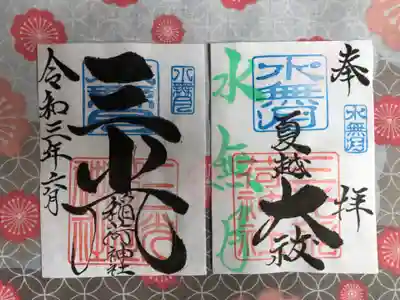 奉拝
水無月
水無月
夏越
大祓
水無月
三光
稲荷神社
令和三年六月